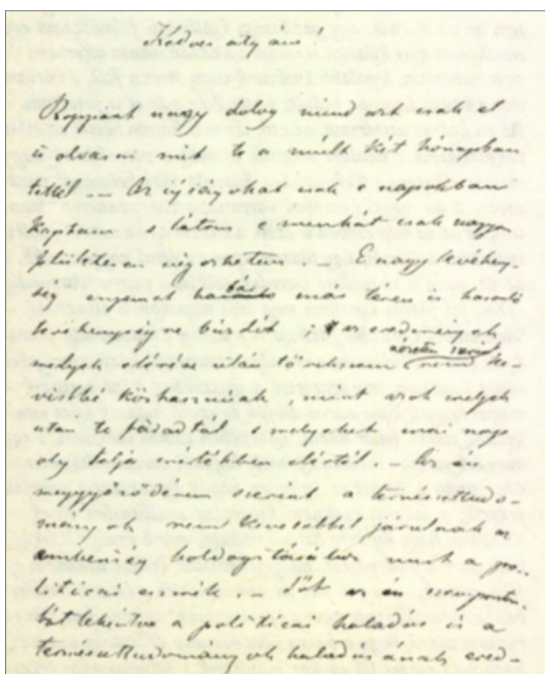 Kedves atyám!
Roppant nagy dolog mind azt csak el
is olvasni mit te a mult két hónapban
tettél — Az ujságokat csak e napokban
kaptam s látom e munkát csak nagyon
felületesen végezhetem. — E nagy tevékeny-
ség engemet bár más téren is hasonló
tevékenységre buzdit, s az eredmények
melyek elérése után törekszem nem ke-
vésbbé közhasznúak, mint azok melyek
után te fáradtál s melyeket mai nap
oly teljes mértékben elértél. — Az én
meggyőződésem szerint a természettudo-
mányok nem kevesebbet járulnak az
emberiség boldogitásához mint a po-
liticai eszmék — Sőt az én szempontom-
ból tekintve a politicai haladás is a
természettudományok haladásának ered-